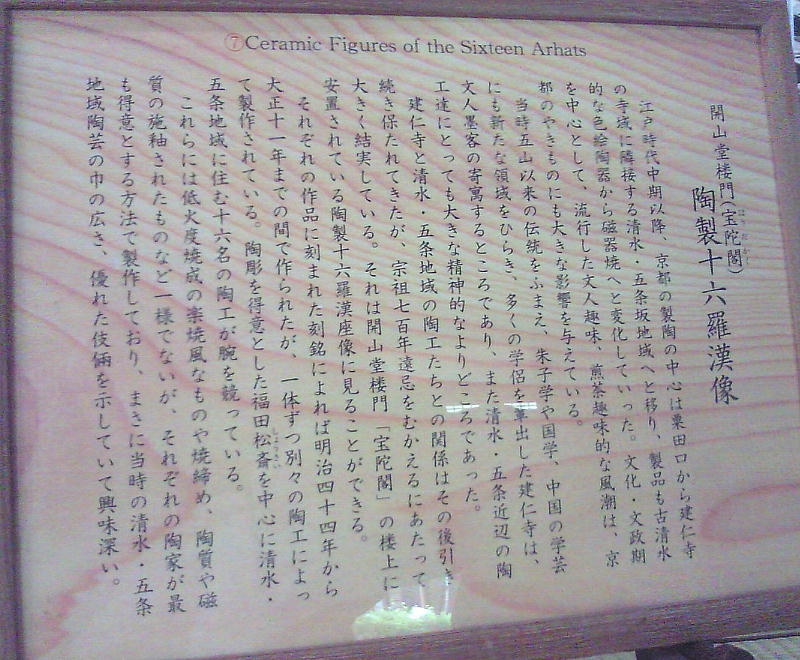 ⑦Ceramic Figures of the Sixteen Arhats
開山堂楼門(宝陀閣)
陶製十六羅漢像
江戸時代中期以降、京都の製陶の中心は粟田口から建仁寺
の寺域に隣接する清水・五条坂地域へと移り、製品も古清水
的な色絵陶器から磁器焼へと変化していった。文化・文政期
を中心として、流行した文人趣味、煎茶趣味的な風潮は、京
都のやきものにも大きな影響を与えている。
当時五山以来の伝統をふまえ、朱子学や国学、中国の学芸
にも新たな領域をひらき、多くの学侶を輩出した建仁寺は、
文人墨客の寄寓するところであり、また清水・五条近辺の陶
工達にとっても大きな精神的なよりどころであった。
建仁寺と清水・五条地域の陶工たちとの関係はその後引き
続き保たれてきたが、宗祖七百年遠忌をむかえるにあたって
大きく結実している。それは開山堂楼門「宝陀閣」の楼上に
安置されている陶製十六羅漢座像に見ることができる。
それぞれの作品に刻まれた刻銘によれば明治四十四年から
大正十一年までの間で作られたが、一体ずつ別々の陶工によっ
て製作されている。陶彫を得意とした福田松斎を中心に清水・
五条地域に住む十六名の陶工が腕を競っている。
これらには低火度焼成の楽焼風なものや焼締め、陶質や磁
質の施釉されたものなど一様でないが、それぞれの陶家が最
も得意とする方法で製作しており、まさに当時の清水・五条
地域陶芸の巾の広さ、優れた伎倆を示していて興味深い。